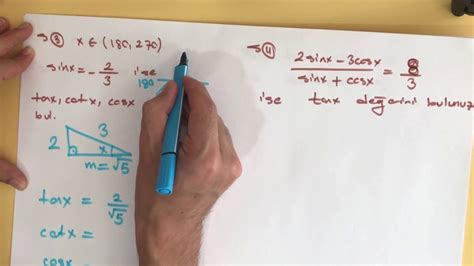 S③ x ∈ (180, 270)
sinx = -2/3 ise
180
tanx, cotx, cosx
bul.
2 3 x
m = √5
tanx = 2/√5
cotx =
cosx
S④
(2sinx - 3cosx)/(sinx + cosx) = 8/3
ise tanx değerini bulunuz